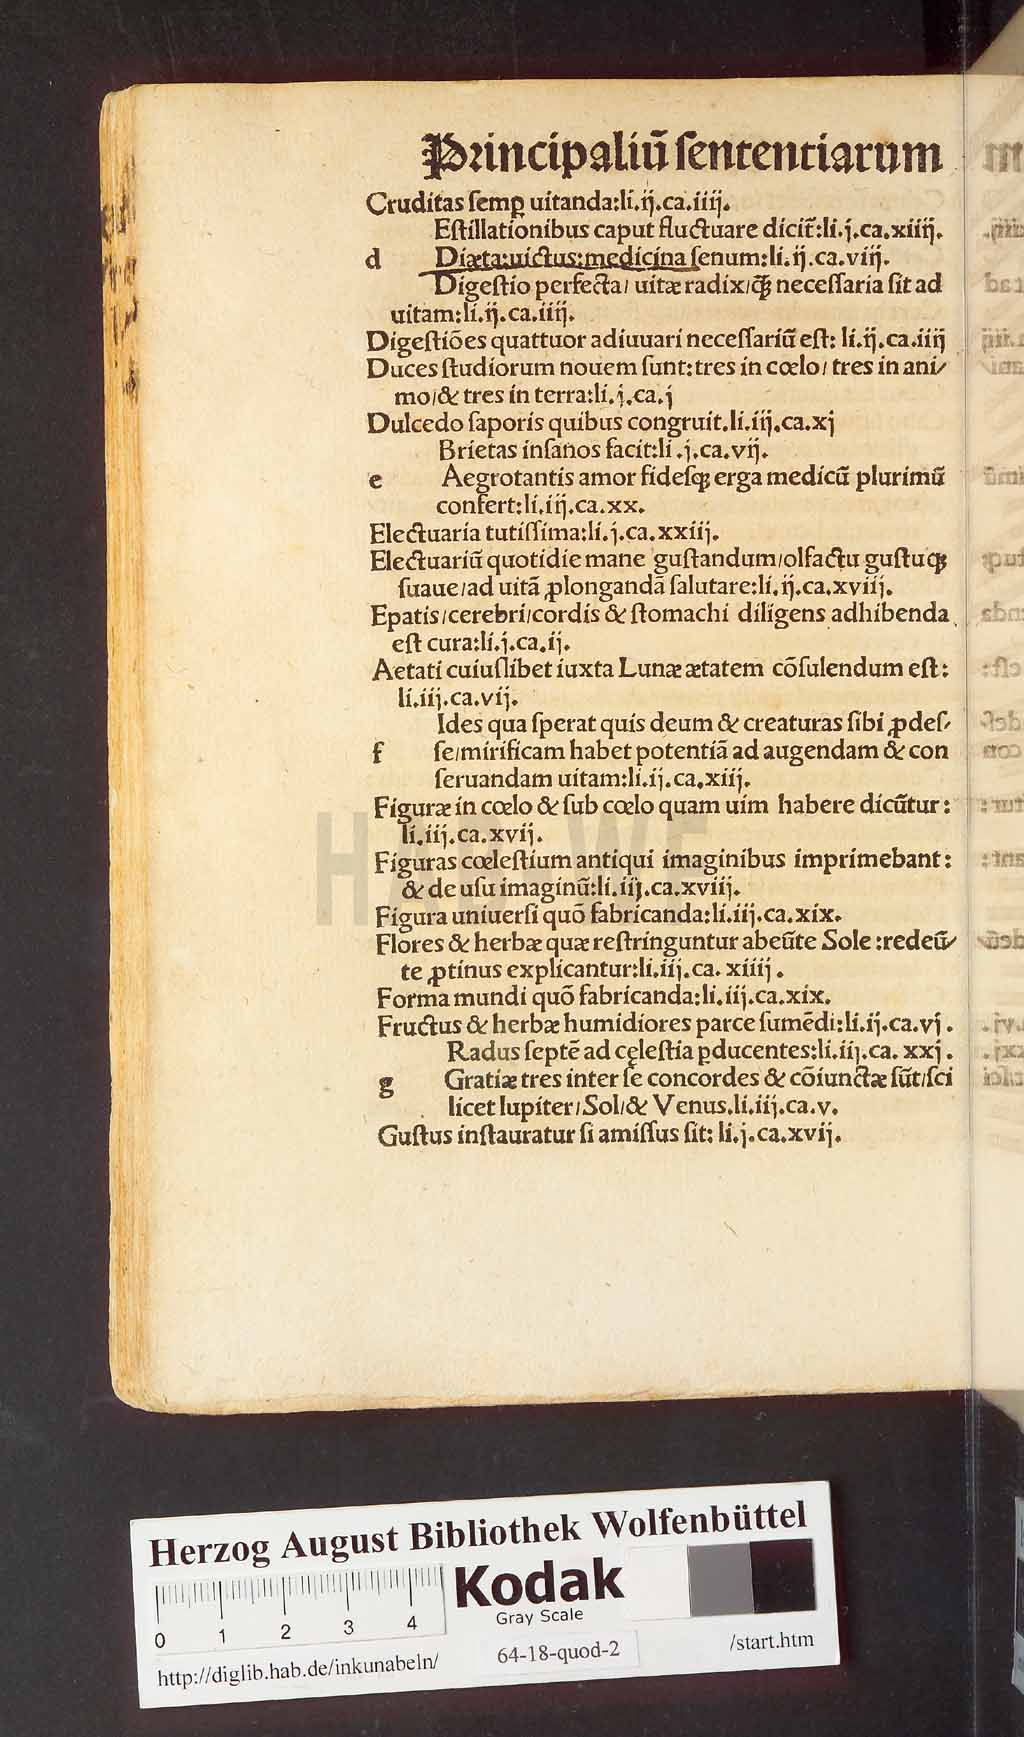 Principaliū ſententiarum
Cruditas ſemꝑ uitanda:li.ij.ca.iiij.
Eſtillationibus caput fluctuare dicit̃:li.j.ca.xiiij.
d Diæta:uictus:medicina ſenum:li.ij.ca.viij.
Digeſtio perfecta/ uitæ radix/q̃ꝫ neceſſaria ſit ad
uitam:li.ij.ca.iiij.
Digeſtiōes quattuor adiuuari neceſſariū eſt: li.ij.ca.iiij
Duces ſtudiorum nouem ſunt:tres in cœlo/ tres in ani/
mo/& tres in terra:li.j.ca.j
Dulcedo ſaporis quibus congruit.li.iij.ca.xj
Brietas inſanos facit:li.j.ca.vij.
e Aegrotantis amor fideſqꝫ erga medicū plurimū
confert:li.iij.ca.xx.
Electuaria tutiſſima:li.j.ca.xxiij.
Electuariū quotidie mane guſtandum/olfactu guſtuqꝫ
ſuaue/ad uitā ꝓlongandā ſalutare:li.ij.ca.xviij.
Epatis/cerebri/cordis & ſtomachi diligens adhibenda
eſt cura:li.j.ca.ij.
Aetati cuiuſlibet iuxta Lunæ ætatem cōſulendum eſt:
li.iij.ca.vij.
Ides qua ſperat quis deum & creaturas ſibi ꝓdeſ/
f ſe/mirificam habet potentiā ad augendam & con
ſeruandam uitam:li.ij.ca.xiij.
Figuræ in cœlo & ſub cœlo quam uim habere dicūtur:
li.iij.ca.xvij.
Figuras cœleſtium antiqui imaginibus imprimebant:
& de uſu imaginū:li.iij.ca.xviij.
Figura uniuerſi quō fabricanda:li.iij.ca.xix.
Flores & herbæ quæ reſtringuntur abeūte Sole:redeū/
te ꝓtinus explicantur:li.iij.ca.xiiij.
Forma mundi quō fabricanda:li.iij.ca.xix.
Fructus & herbæ humidiores parce ſumēdi:li.ij.ca.vj.
Radus ſeptē ad cęleſtia ꝑducentes:li.iij.ca.xxj.
g Gratiæ tres inter ſe concordes & cōiunctæ ſūt/ſci
licet Iupiter/Sol/& Venus.li.iij.ca.v.
Guſtus inſtauratur ſi amiſſus ſit: li.j.ca.xvij.
Herzog August Bibliothek Wolfenbüttel
Kodak
Gray Scale
0 1 2 3 4
http://diglib.hab.de/inkunabeln/
64-18-quod-2
/start.htm